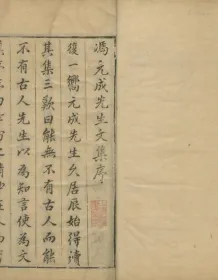 馮元成先生文集序
復一嚮元成先生久居辰始得讀
其集三歎曰能無不有古人而能
不有古人先生以為知言使為文